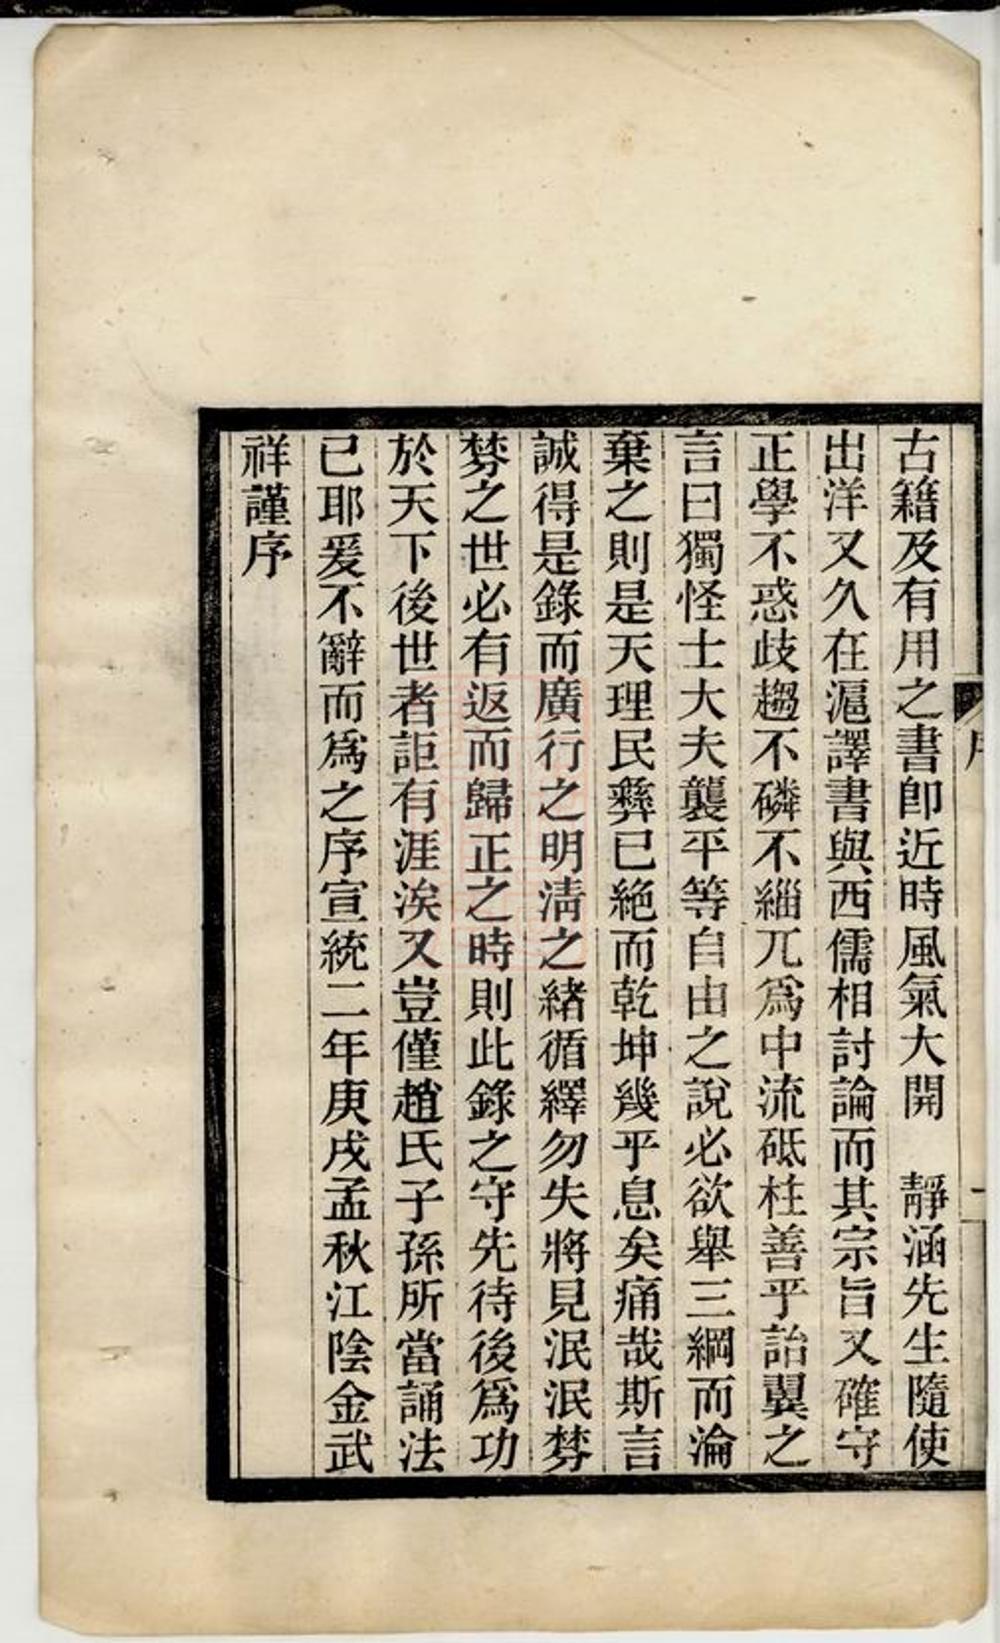 古籍及有用之書卽近時風氣大開　靜涵先生隨使
出洋又久在滬譯書與西儒相討論而其宗旨又確守
正學不惑歧趨不磷不緇兀爲中流砥柱善乎詒翼之
言曰獨怪士大夫襲平等自由之說必欲舉三綱而淪
棄之則是天理民彝已絶而乾坤幾乎息矣痛哉斯言
誠得是錄而廣行之明淸之緖循繹勿失將見泯泯棼
棼之世必有返而歸正之時則此錄之守先待後爲功
於天下後世者詎有涯涘又豈僅趙氏子孫所當誦法
已耶爰不辭而爲之序宣統二年庚戌孟秋江陰金武
祥謹序